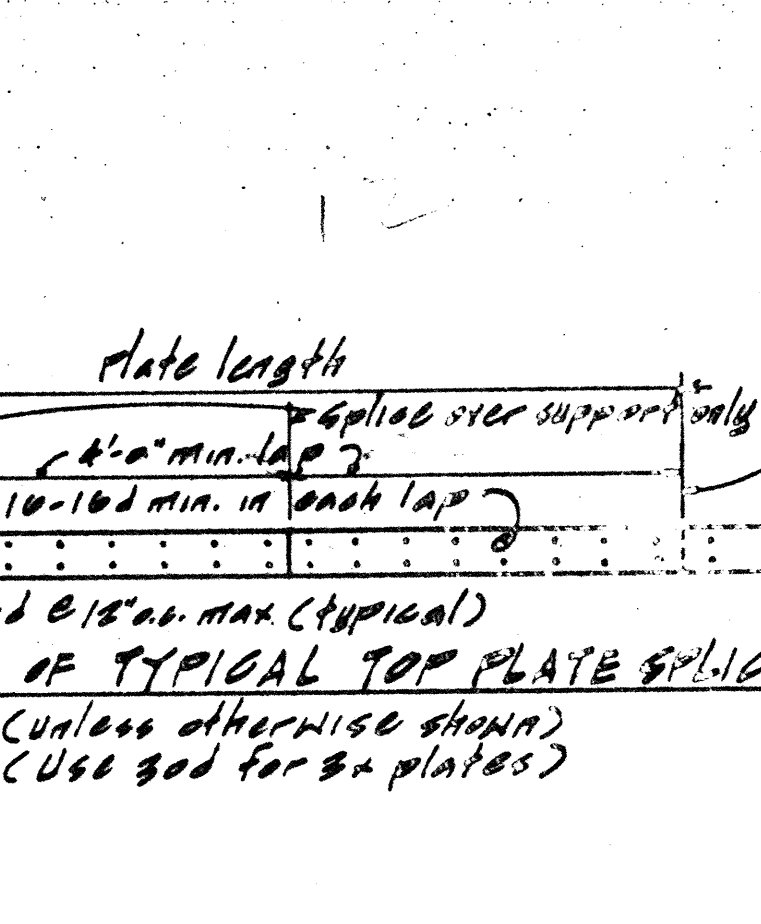 Plate length
Splice over support only
4'-0" min. lap
16-16d min. in each lap
d @ 12" o.c. max. (typical)
OF TYPICAL TOP PLATE SPLIC
(unless otherwise shown)
(Use 30d for 3x plates)